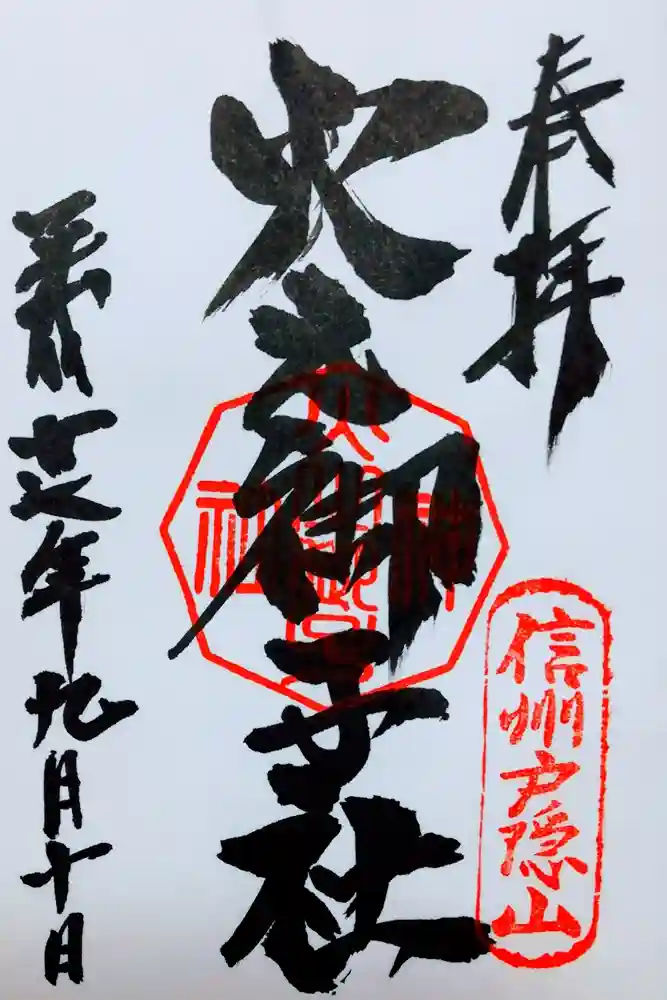 奉拝
信州戸隠山
火之御子社
平成 年九月十日